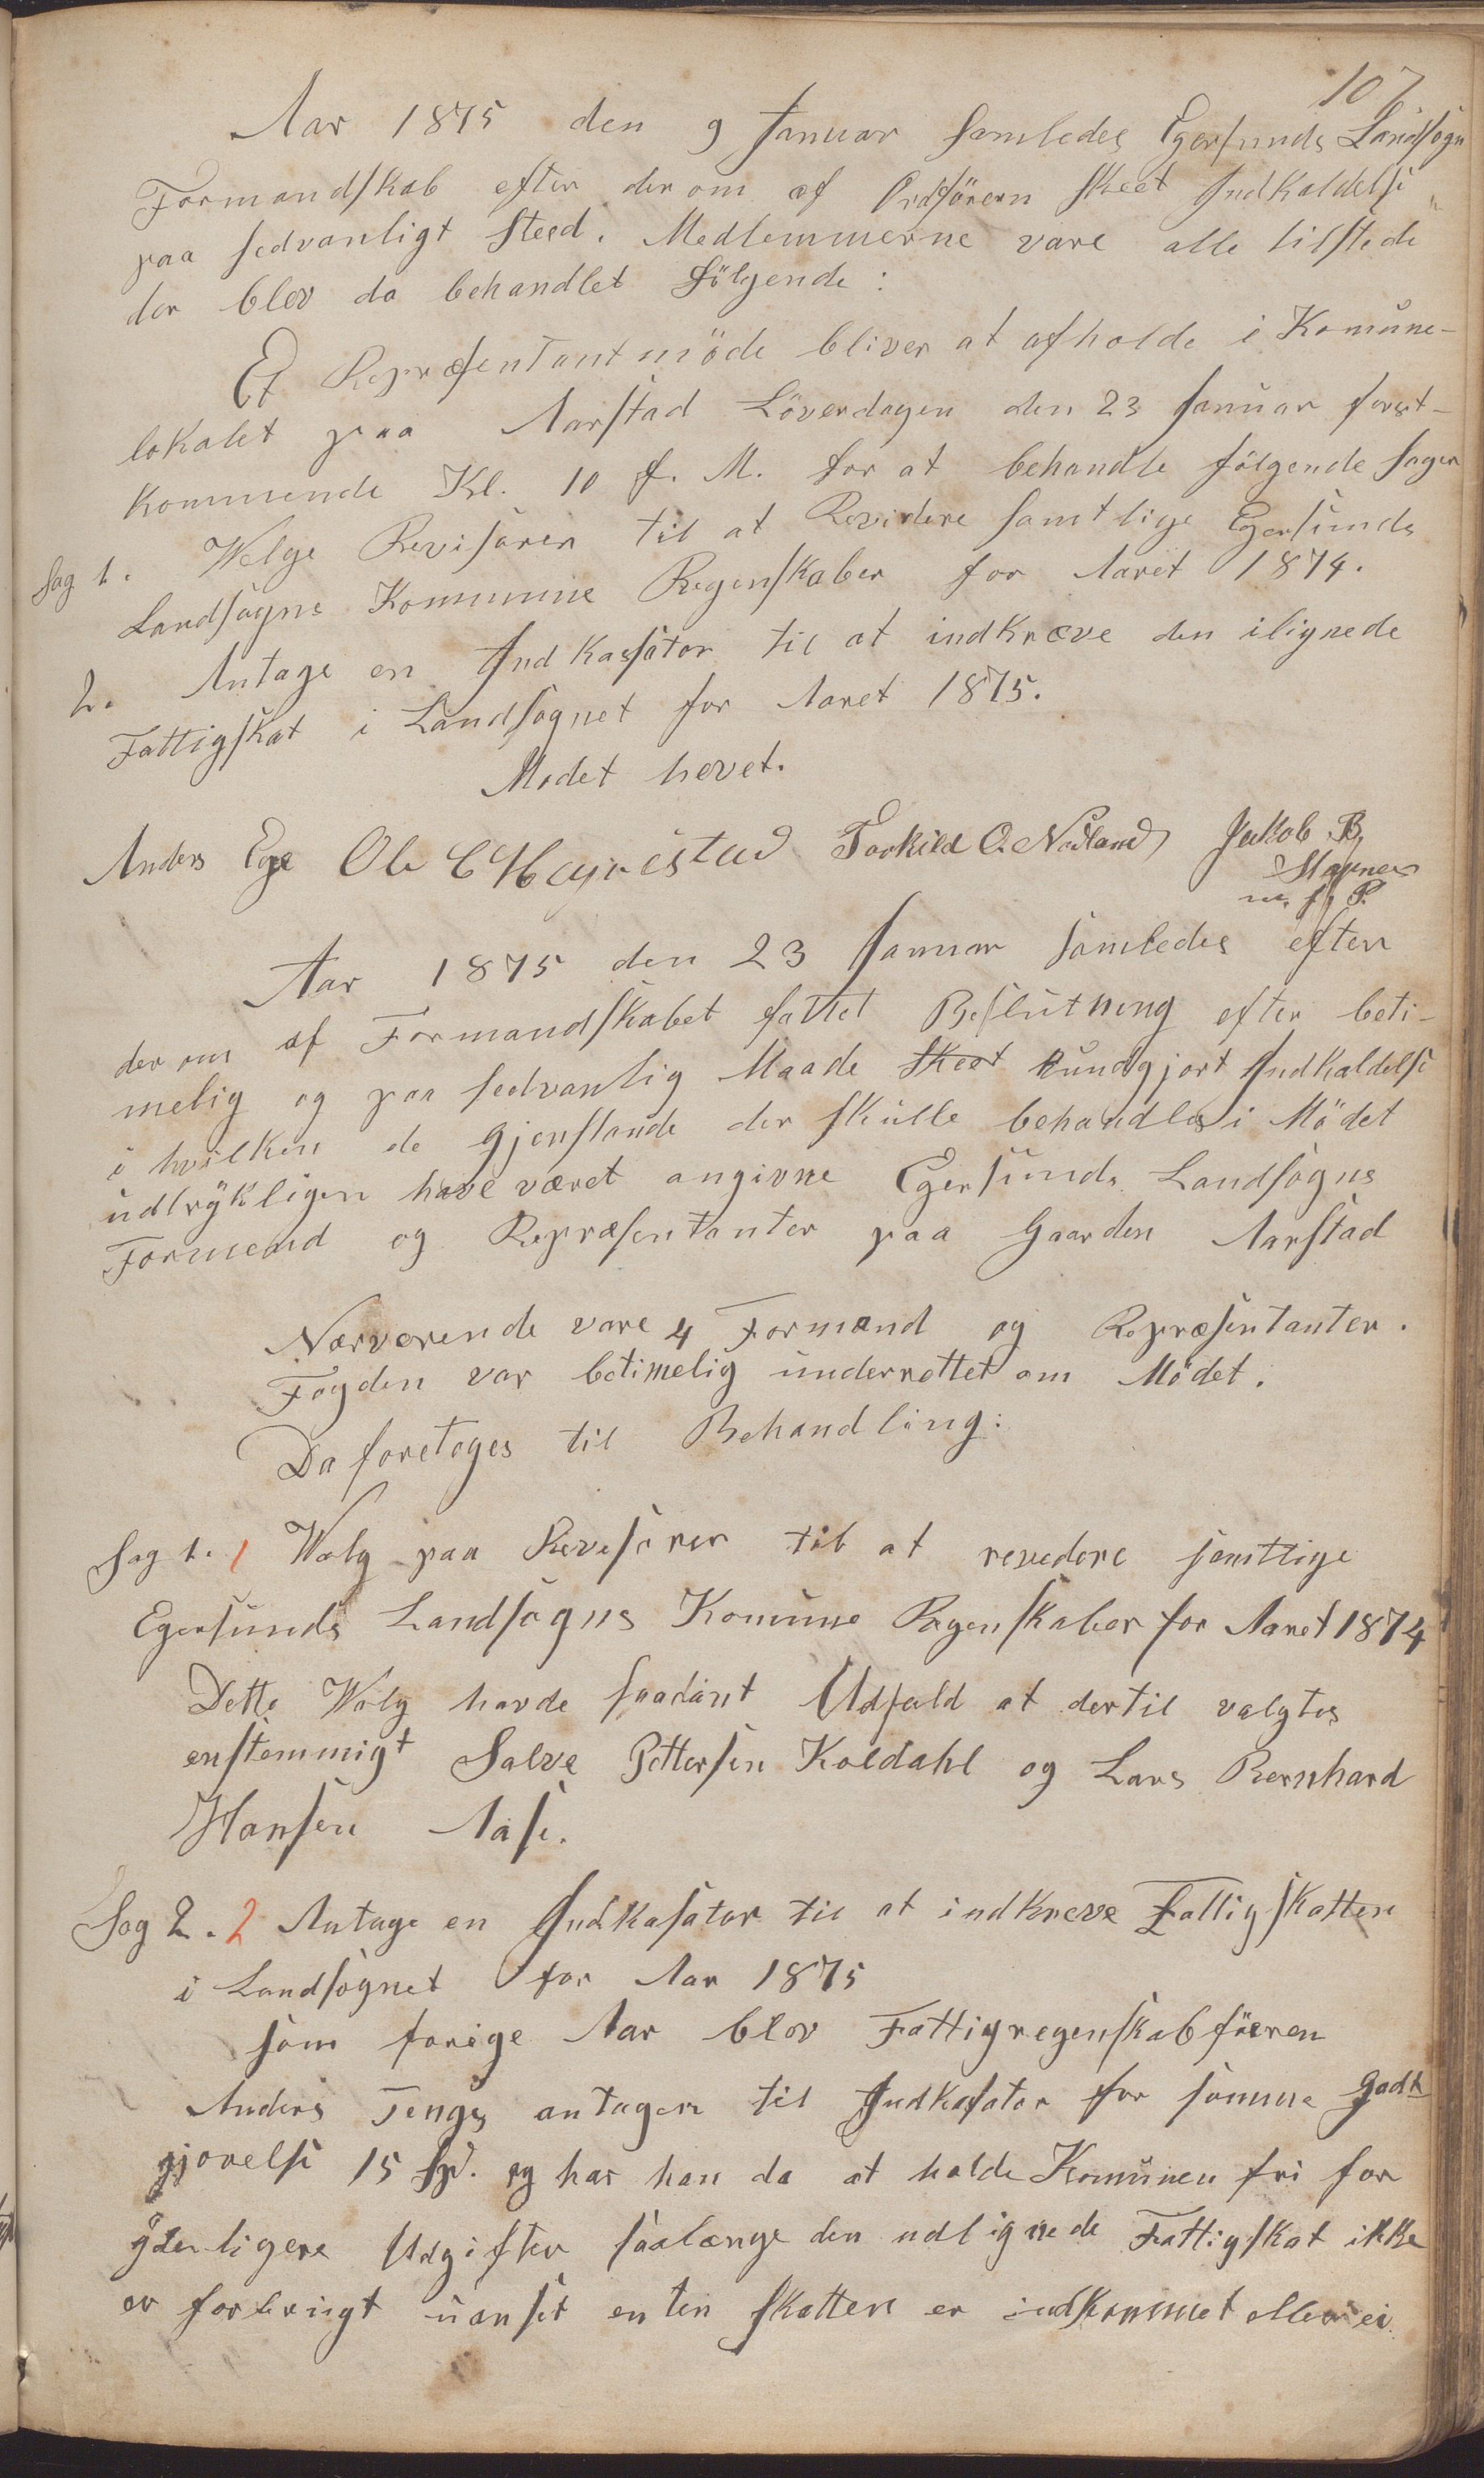 107
Aar 1875 den 9 Januar samledes Egersunds Landsogn
Formandskab efter derom af Ordföreren skeet Indkaldelse
paa sedvanligt Steed. Medlemmerne vare alle tilstede
der blev da behandlet følgende:
Et Repræsentantmöde bliver at afholde i Komune-
lokalet paa Aarstad Löverdagen den 23 Januar først-
kommende Kl. 10 f. M. for at behandle følgende sager
Sag 1. Velge Revisorer til at Revidere samtlige Egersunds
Landsogns Kommune Regenskaber for Aaret 1874.
2. Antage en Indkassator til at indkræve den ilignede
Fattigskat i Landsognet for Aaret 1875.
Modet hevet.
Anders Ege Ole C Haynestad Torkild O. Nodland Jakob B.
Stapnes
m. f. P.
Aar 1875 den 23 Januar samledes efter
derom af Formandskabet fattet Beslutning efter beti-
melig og paa sedvanlig Maade skeet kundgjort Indkaldelse
i hvilken de Gjenstande der skulle behandles i Mödet
udtrykligen have været angivne Egersunds Landsogns
Formænd og Repræsentanter paa Gaarden Aarstad
Nærværende vare 4 Formænd og Repræsentanter.
Fogden var betimelig underrettet om Mödet.
Da foretoges til Behandling:
Sag 1. 1 Valg paa Revisorer til at revedere samtlige
Egersunds Landsogns Komune Regenskaber for Aaret 1874
Dette Valg havde saadant Udfald at dertil valgtes
enstemmigt Salve Pettersen Koldahl og Lars Bernhard
Hansen Aase.
Sag 2. 2 Antage en Indkasator til at indkreve Fattigskatten
i Landsognet for Aar 1875
som forige Aar blev Fattigregenskabföeren
Anders Tengs antagen til Indkasator for samme Godt
gjorelse 15 Spd. og har han da at holde Komunen fri for
yderligere Udgifter saalænge den udlignede Fattigskat ikke
er forbrugt uanset enten skatten er indkommet eller ei.